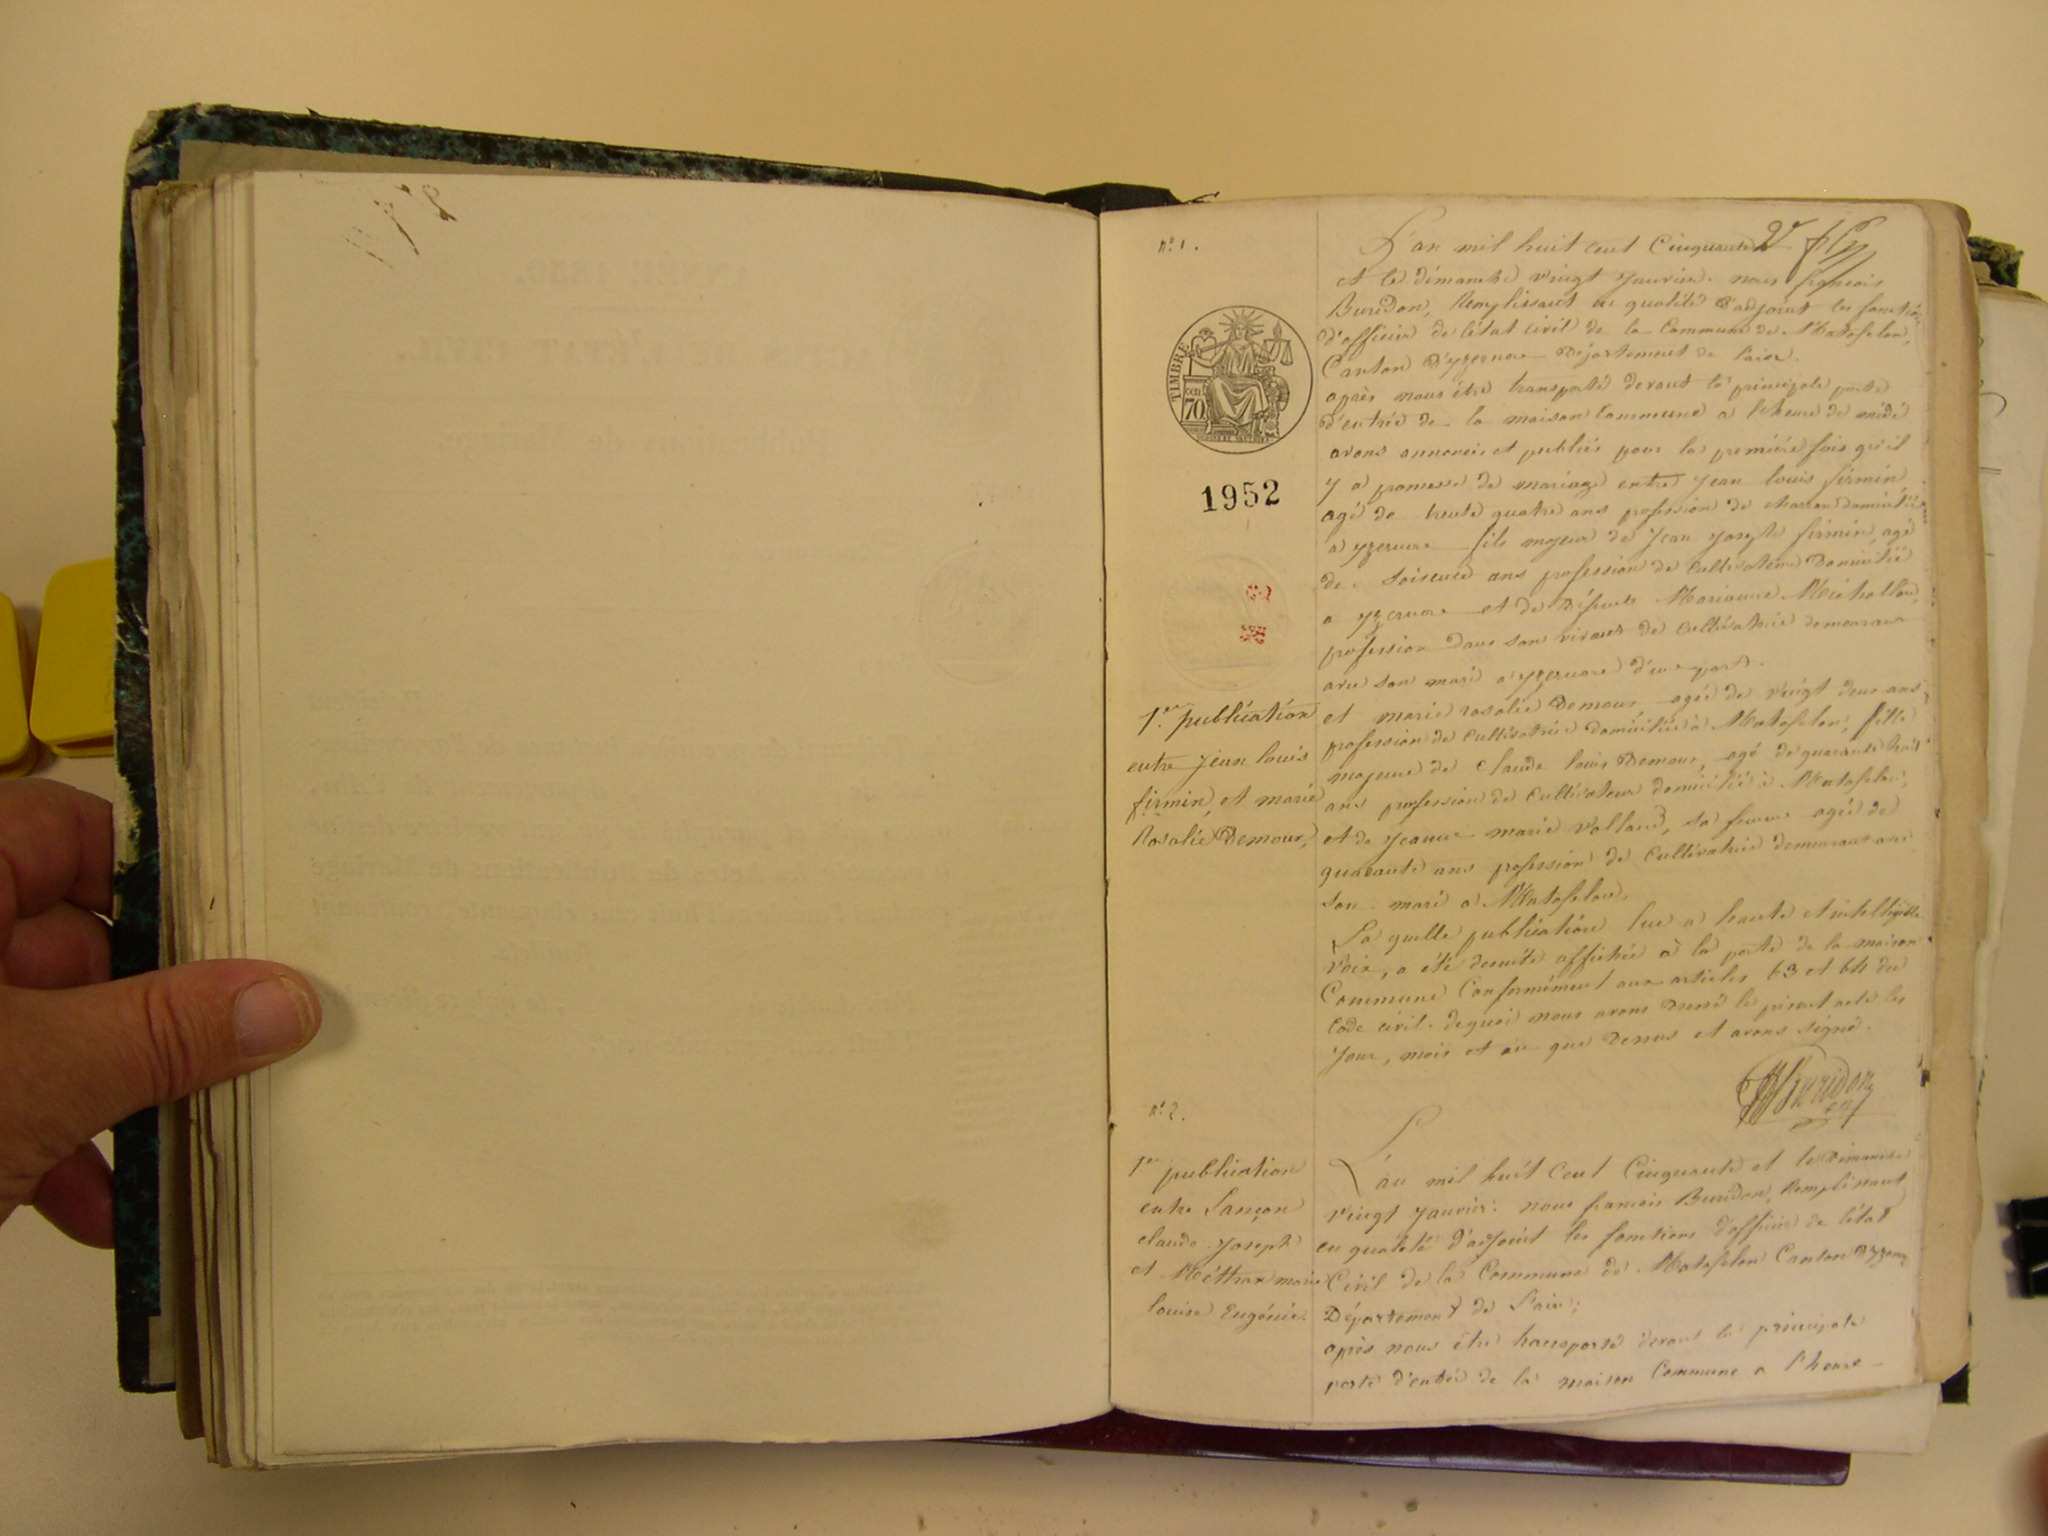 n.° 1.
TIMBRE
70
1952
1.re publication
entre jean louis
firmin, et marie
Rosalie Demour,
L'an mil huit cent Cinquante
et le dimanche vingt janvier. nous françois
Buridon, Remplissant en qualité d'adjoint les fonctions
d'officier de l'état civil de la Commune de Matafelon,
Canton D'yzernore Département de l'ain.
après nous être transporté devant la principale porte
d'entrée de la maison Commune a l'heure de midi
avons annoncé et publiés pour la première fois qu'il
y a promesse de mariage entre jean louis firmin,
agé de trente quatre ans profession de charron domicilié
a yzernore fils majeur de jean joseph firmin, agé
de. soisente ans profession de cultivateur Domicilié
a yzernore et de Défunte Marianne Michallon,
profession dans son vivant de cultivatrice demeurant
avec son mari a yzernore d'une part.
et marie rosalie Demour, agée de vingt deux ans
profession de cultivatrice domiciliée à Matafelon, fille
majeure de claude louis Demour, agé de quarante huit
ans profession de cultivateur domicilié à Matafelon,
et de jeanne marie Volland, sa femme agée de
quarante ans profession de cultivatrice demeurant avec
son mari a Matafelon,
La quelle publication lue a haute et intelligible
voix, a été desuite affichée à la porte de la maison
Commune Conformément aux articles 63 et 64 du
Code civil. dequoi nous avons Dressé le présent acte les
jour, mois et an que Dessus et avons signé.
Buridon
n.° 2.
1.re publication
entre Lançon
claude joseph
et Méthax marie
louise Eugénie.
L'an mil huit Cent Cinquante et le Dimanche
vingt janvier: nous francois Buridon, Remplissant
en qualité d'adjoint les fonctions d'officier de l'état
Civil de la Commune de Matafelon Canton D'yzernore
Département de l'ain;
après nous être transporté devant la principale
porte d'entrée de la maison Commune a l'heure